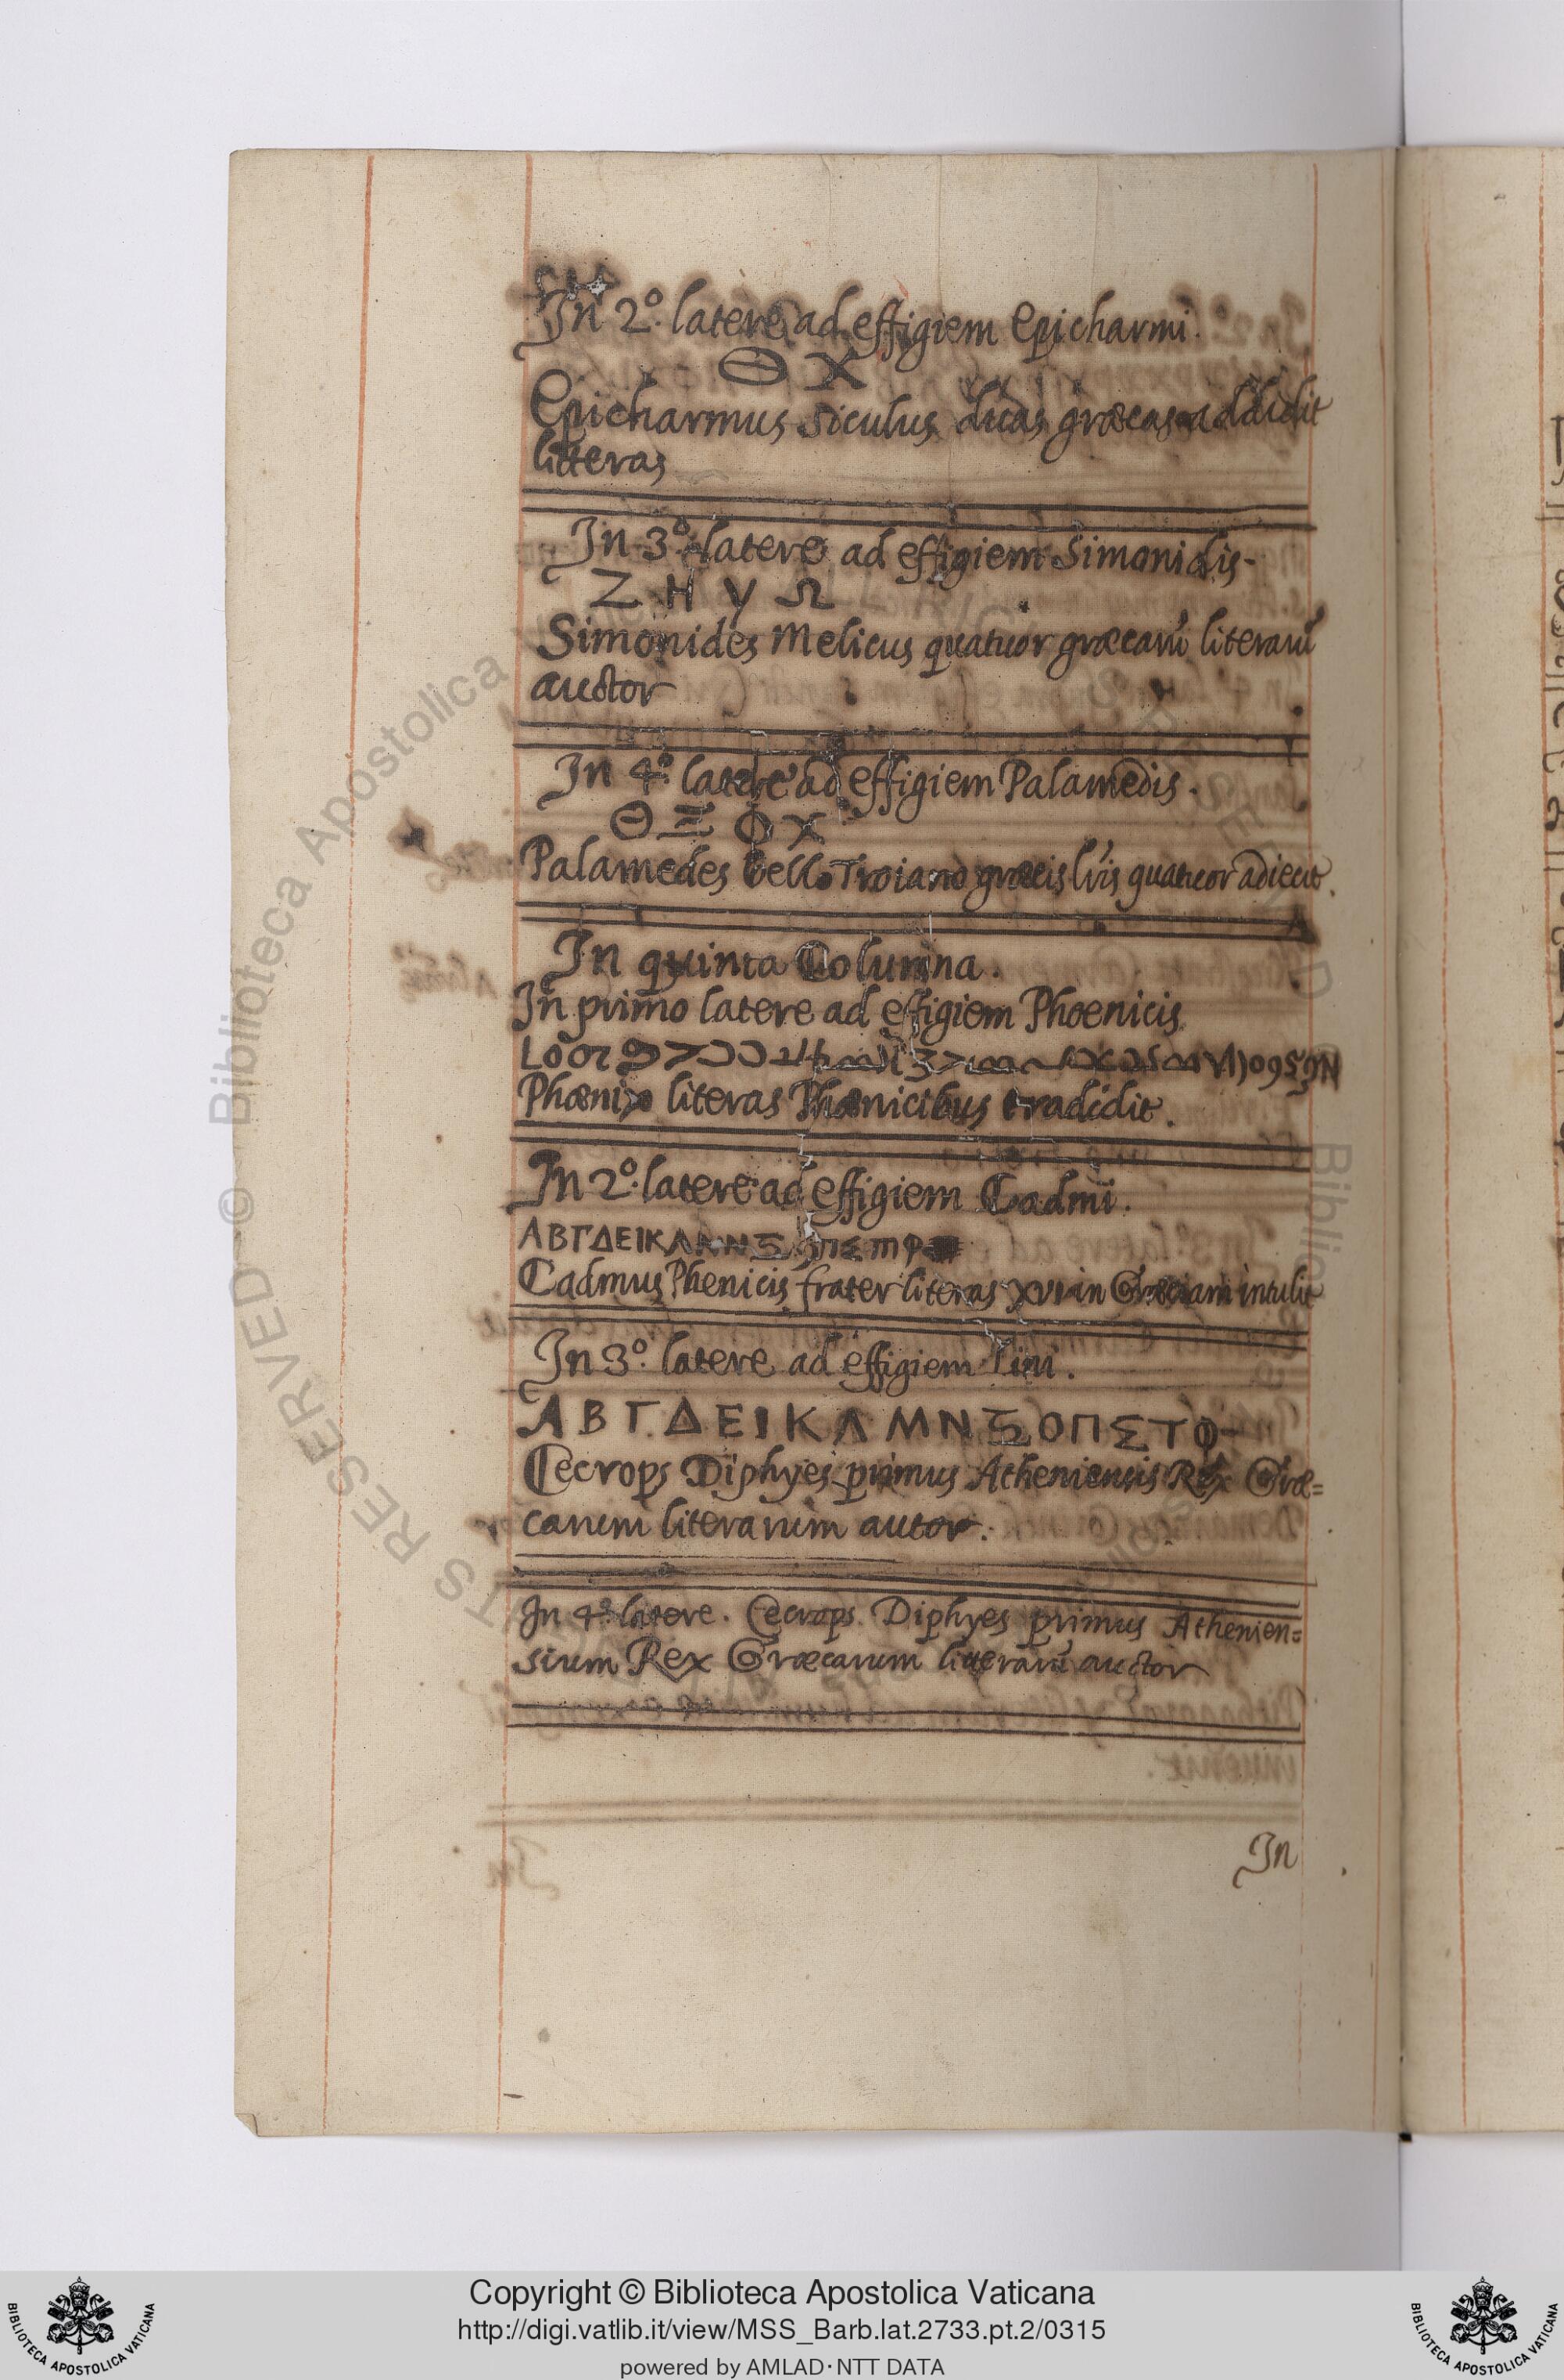 In 2º. latere ad effigiem Epicharmi.
Θ Χ
Epicharmus Siculus duas græcas addidit
litteras
In 3º. latere ad effigiem Simonidis.
Z H y Ω
Simonides Melicus quatuor græcarũ literarũ
auctor
In 4º. latere ad effigiem Palamedis.
Θ Ξ Φ Χ
Palamedes bello Troiano græcis lr̃is quatuor adiecit.
In quinta Columna.
In primo latere ad effigiem Phoenicis
Phœnix literas Phœnicibus tradidit.
In 2º. latere ad effigiem Cadmi.
ΑΒΓΔΕΙΚΛ
Cadmus Phenicis frater literas XVI in Græciam intulit
In 3º. latere ad effigiem Lini.
Α Β Γ. Δ Ε Ι Κ Λ Μ Ν Ξ Ο Π Σ Τ Φ
Cecrops Diphyes primus Atheniensis Rex Græ=
carum literarum autor.
In 4º. latere. Cecrops Diphyes primus Athenien=
sium Rex Græcarum litterarũ auctor
In
Copyright © Biblioteca Apostolica Vaticana
http://digi.vatlib.it/view/MSS_Barb.lat.2733.pt.2/0315
powered by AMLAD·NTT DATA
BIBLIOTECA APOSTOLICA VATICANA
BIBLIOTECA APOSTOLICA VATICANA